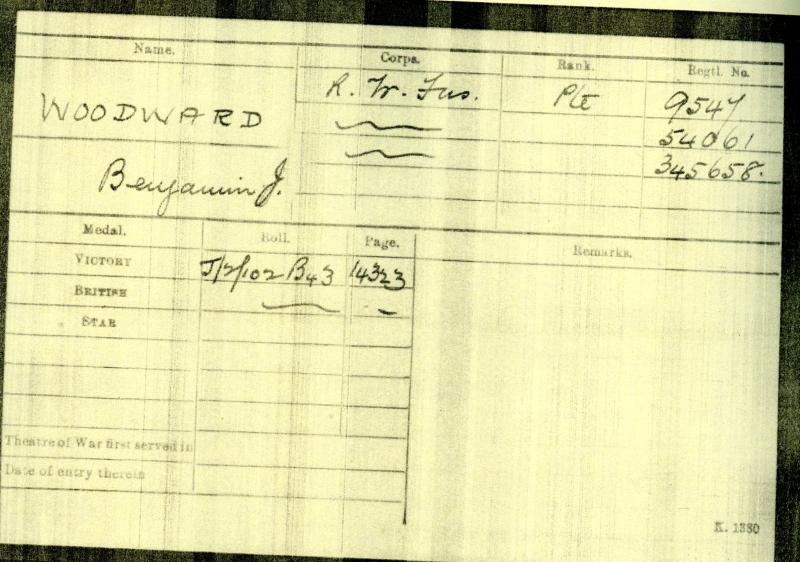 Name. Corps. Rank. Regtl. No.
WOODWARD R. W. Fus. Pte 9547
54061
345658.
Benjamin J.
Medal. Roll. Page. Remarks.
VICTORY J/2/102 B43 14323
BRITISH
STAR
Theatre of War first served in
Date of entry therein
K. 1380